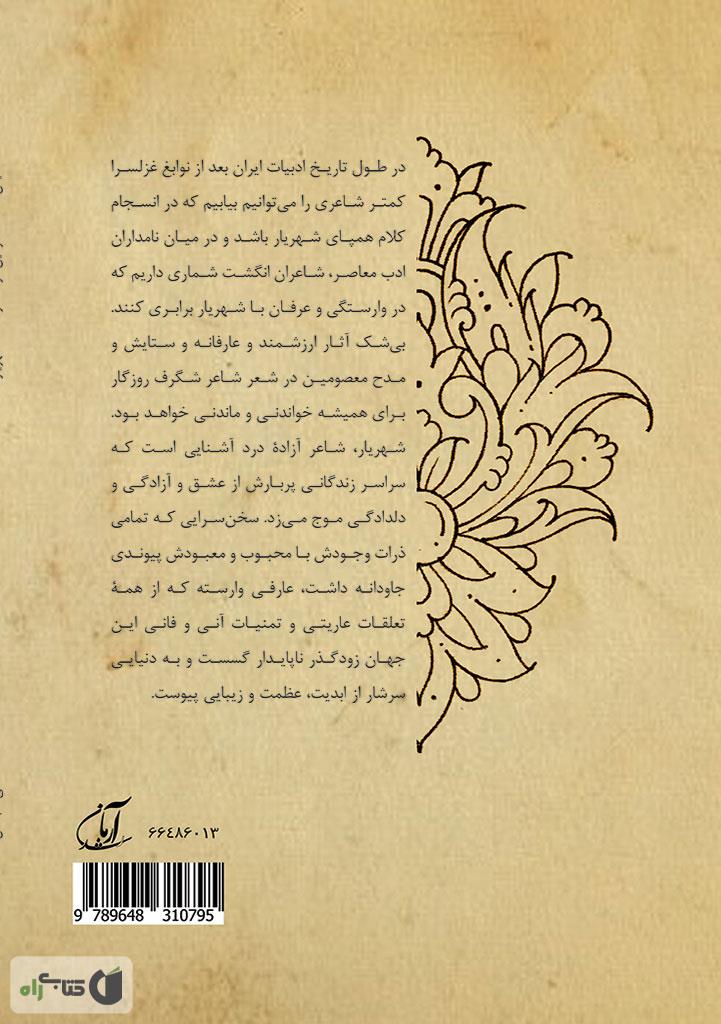 در طول تاریخ ادبیات ایران بعد از نوابغ غزلسرا
کمتر شاعری را می‌توانیم بیابیم که در انسجام
کلام همپای شهریار باشد و در میان نامداران
ادب معاصر، شاعران انگشت شماری داریم که
در وارستگی و عرفان با شهریار برابری کنند.
بی‌شک آثار ارزشمند و عارفانه و ستایش و
مدح معصومین در شعر شاعر شگرف روزگار
برای همیشه خواندنی و ماندنی خواهد بود.
شهریار، شاعر آزادهٔ درد آشنایی است که
سراسر زندگانی پربارش از عشق و آزادگی و
دلدادگی موج می‌زد. سخن‌سرایی که تمامی
ذرات وجودش با محبوب و معبودش پیوندی
جاودانه داشت، عارفی وارسته که از همهٔ
تعلقات عاریتی و تمنیات آنی و فانی این
جهان زودگذر ناپایدار گسست و به دنیایی
سرشار از ابدیت، عظمت و زیبایی پیوست.
آرمان
۶۶۴۸۶۰۱۳
9 789648 310795
کتابراه